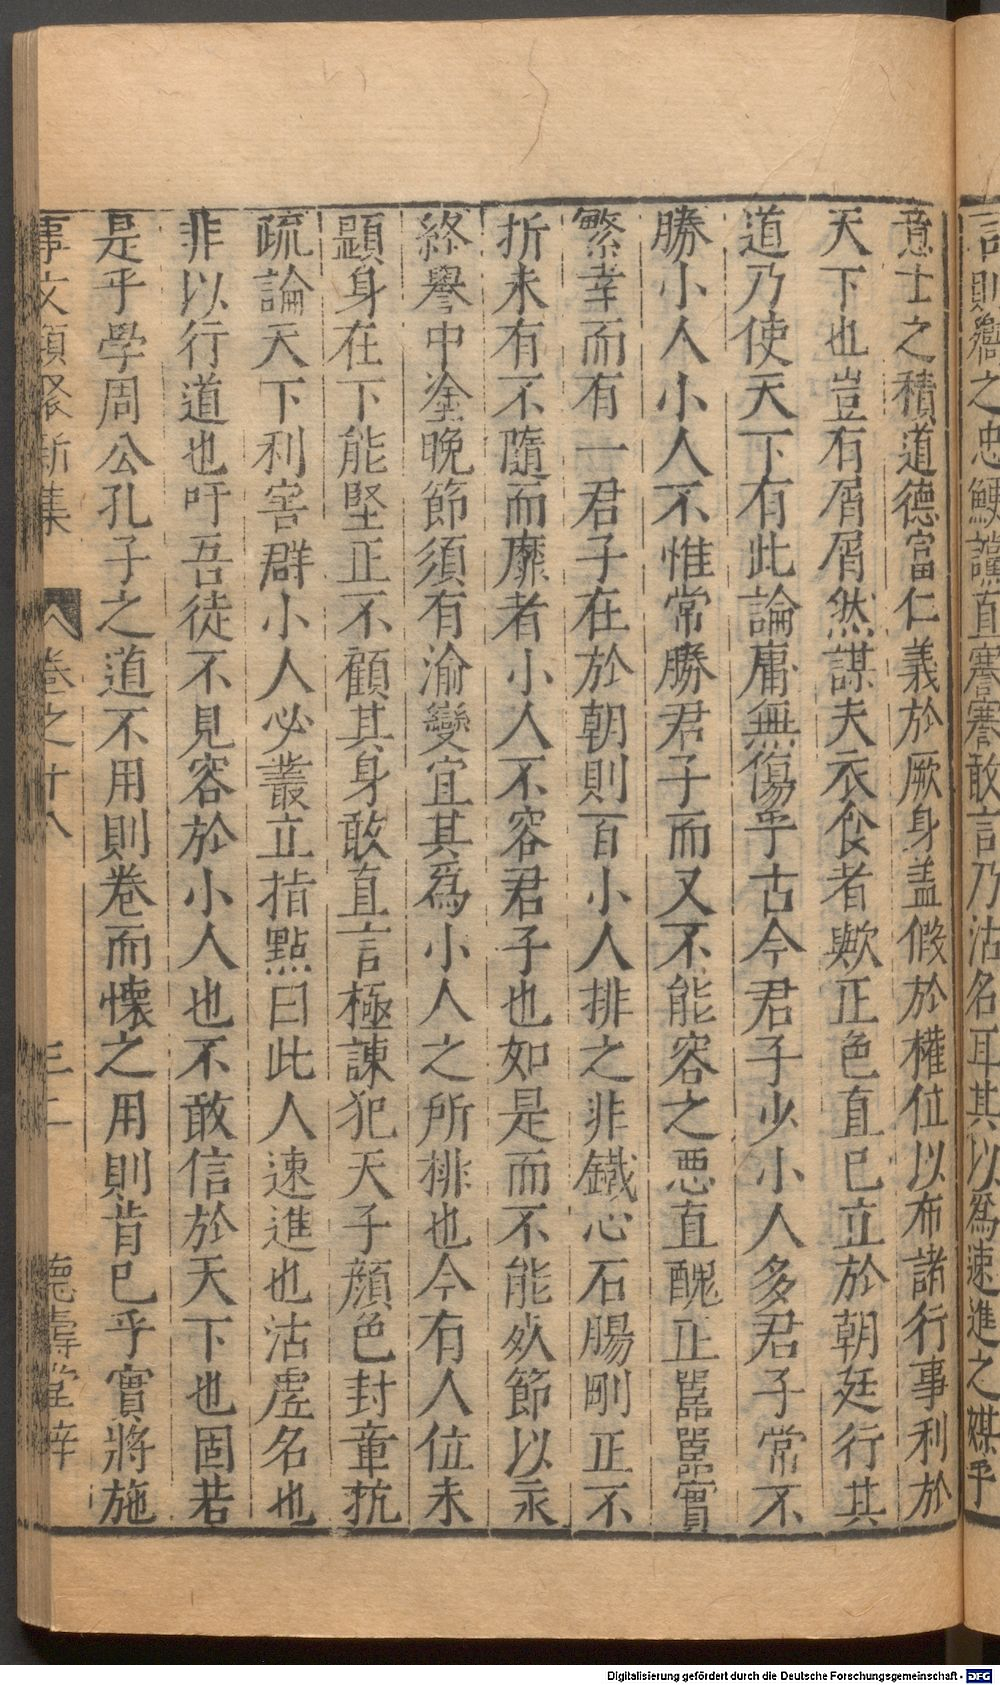 言則嚮之忠鯁讜直謇謇敢言乃沽名耳其以爲速進之媒乎
意士之積道德富仁義於厥身盖假於權位以布諸行事利於
天下也豈有屑屑然謀夫衣食者歟正色直已立於朝廷行其
道乃使天下有此論庸無傷乎古今君子少小人多君子常不
勝小人小人不惟常勝君子而又不能容之惡直醜正嚚嚚實
繁幸而有一君子在於朝則百小人排之非鐵心石腸剛正不
折未有不隨而靡者小人不容君子也如是而不能效節以永
終譽中塗晚節須有渝變宜其爲小人之所排也今有人位未
顕身在下能堅正不顧其身敢直言極諫犯天子顔色封章抗
疏論天下利害群小人必叢立指點曰此人速進也沽虗名也
非以行道也吁吾徒不見容於小人也不敢信於天下也固若
是乎學周公孔子之道不用則卷而懷之用則肯已乎實將施
事文類聚新集 卷之廿八 三二 德壽堂梓
Digitalisierung gefördert durch die Deutsche Forschungsgemeinschaft - DFG